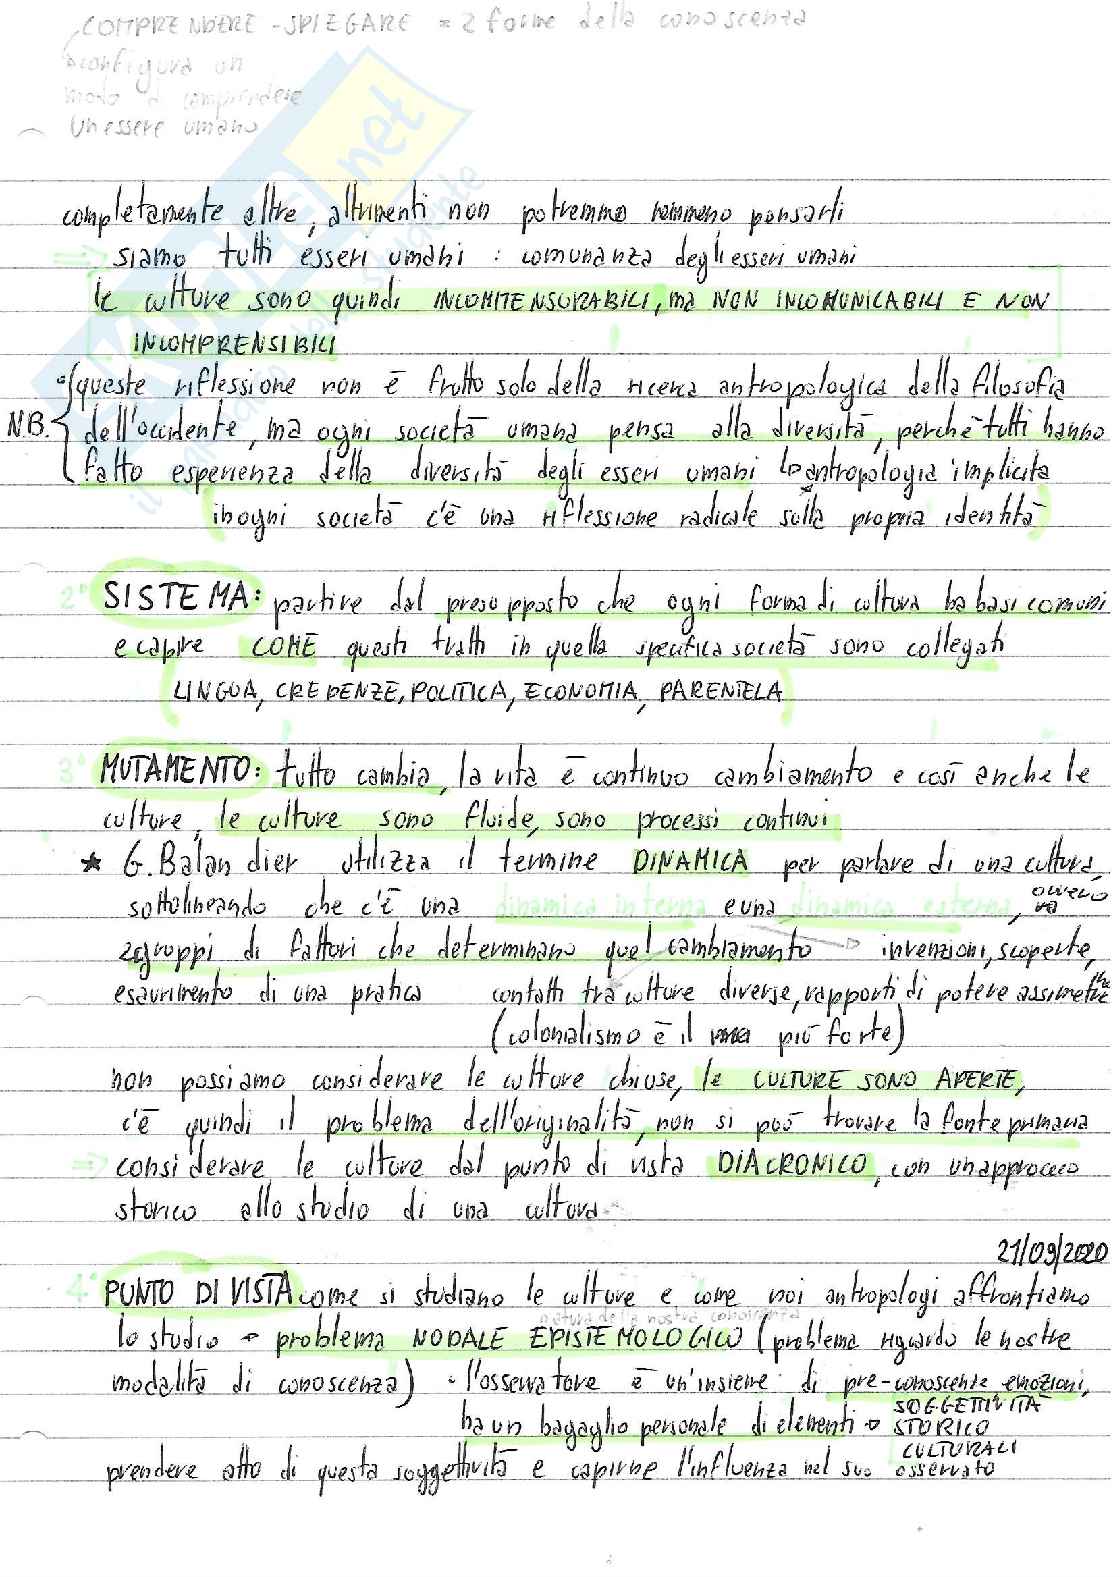 COMPRENDERE - SPIEGARE = 2 forme della conoscenza
configura un
modo di comprendere
un essere umano
completamente altre, altrimenti non potremmo nemmeno pensarli
⇒ siamo tutti esseri umani : comunanza degli esseri umani
le culture sono quindi INCOMMENSURABILI, ma NON INCOMUNICABILI E NON
INCOMPRENSIBILI
queste riflessione non è frutto solo della ricerca antropologica della filosofia
N.B. dell'occidente, ma ogni società umana pensa alla diversità, perchè tutti hanno
fatto esperienza della diversità degli esseri umani ↳ antropologia implicita
in ogni società c'è una riflessione radicale sulla propria identità
2° SISTEMA: partire dal presupposto che ogni forma di cultura ha basi comuni
e capire COME questi tratti in quella specifica società sono collegati
LINGUA, CREDENZE, POLITICA, ECONOMIA, PARENTELA
3° MUTAMENTO: tutto cambia, la vita è continuo cambiamento e così anche le
culture, le culture sono fluide, sono processi continui
★ G. Balandier utilizza il termine DINAMICA per parlare di una cultura,
sottolineando che c'è una dinamica interna e una dinamica esterna, ovvero
2 gruppi di fattori che determinano quel cambiamento → invenzioni, scoperte,
esaurimento di una pratica contatti tra culture diverse, rapporti di potere assimetrici
(colonialismo è il più forte)
non possiamo considerare le culture chiuse, le CULTURE SONO APERTE,
c'è quindi il problema dell'originalità, non si può trovare la fonte primaria
⇒ considerare le culture dal punto di vista DIACRONICO, con un approccio
storico allo studio di una cultura
21/09/2020
4° PUNTO DI VISTA come si studiano le culture e come noi antropologi affrontiamo
natura della nostra conoscenza
lo studio → problema NODALE EPISTEMOLOGICO (problema riguardo le nostre
modalità di conoscenza) · l'osservatore è un'insieme di pre-conoscenze emozioni,
SOGGETTIVITÀ
ha un bagaglio personale di elementi → STORICO
CULTURALI
prendere atto di questa soggettività e capirne l'influenza nel suo osservato